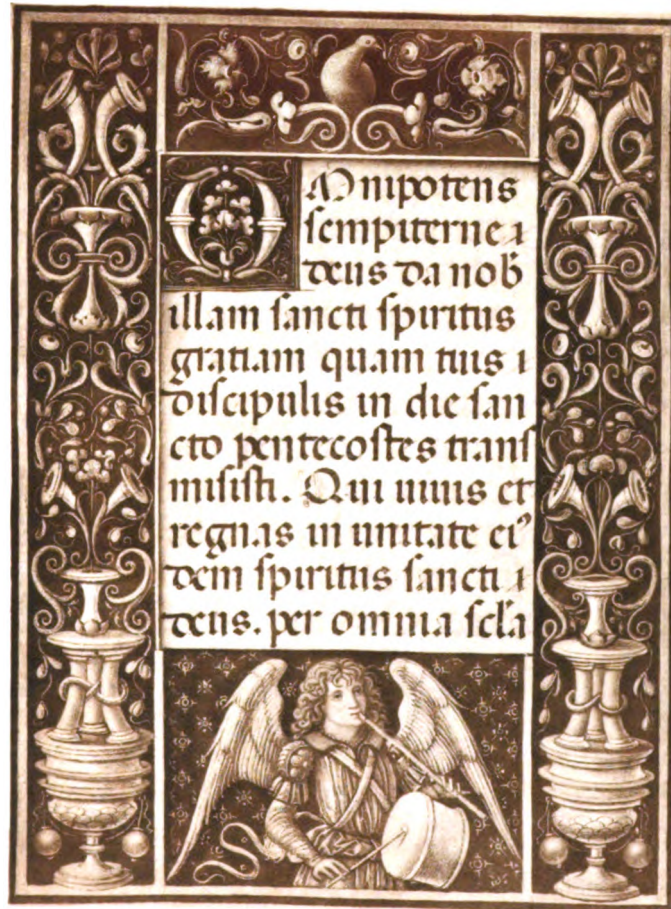 OMnipotens
sempiterne
deus da nob
illam sancti spiritus
gratiam quam tuis
discipulis in die san
cto pentecostes trans
misisti. Qui uiuis et
regnas in unitate ei⁹
dem spiritus sancti
deus. per omnia scľa